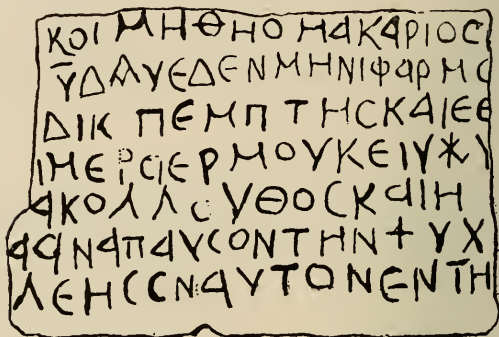 ΚΟΙΜΗΘΗΟΜΑΚΑΡΙΟC
ΥΔΑΥΕΔΕΝΜΗΝΙΦΑΡΜC
ΔΙΚΠΕΜΠΤΗCΚΑΙΕΕ
ΙΜΕΡCΙΕΡΜΟΥΚΕΙΥ⳩Υ
ΑΚΟΛΛCΥΘΟCΚΑΙΗ
ΑΑΝΑΠΑΥCΟΝΤΗΝ+ΥΧ
ΛΕΗCCΝΑΥΤΟΝΕΝΤΗ